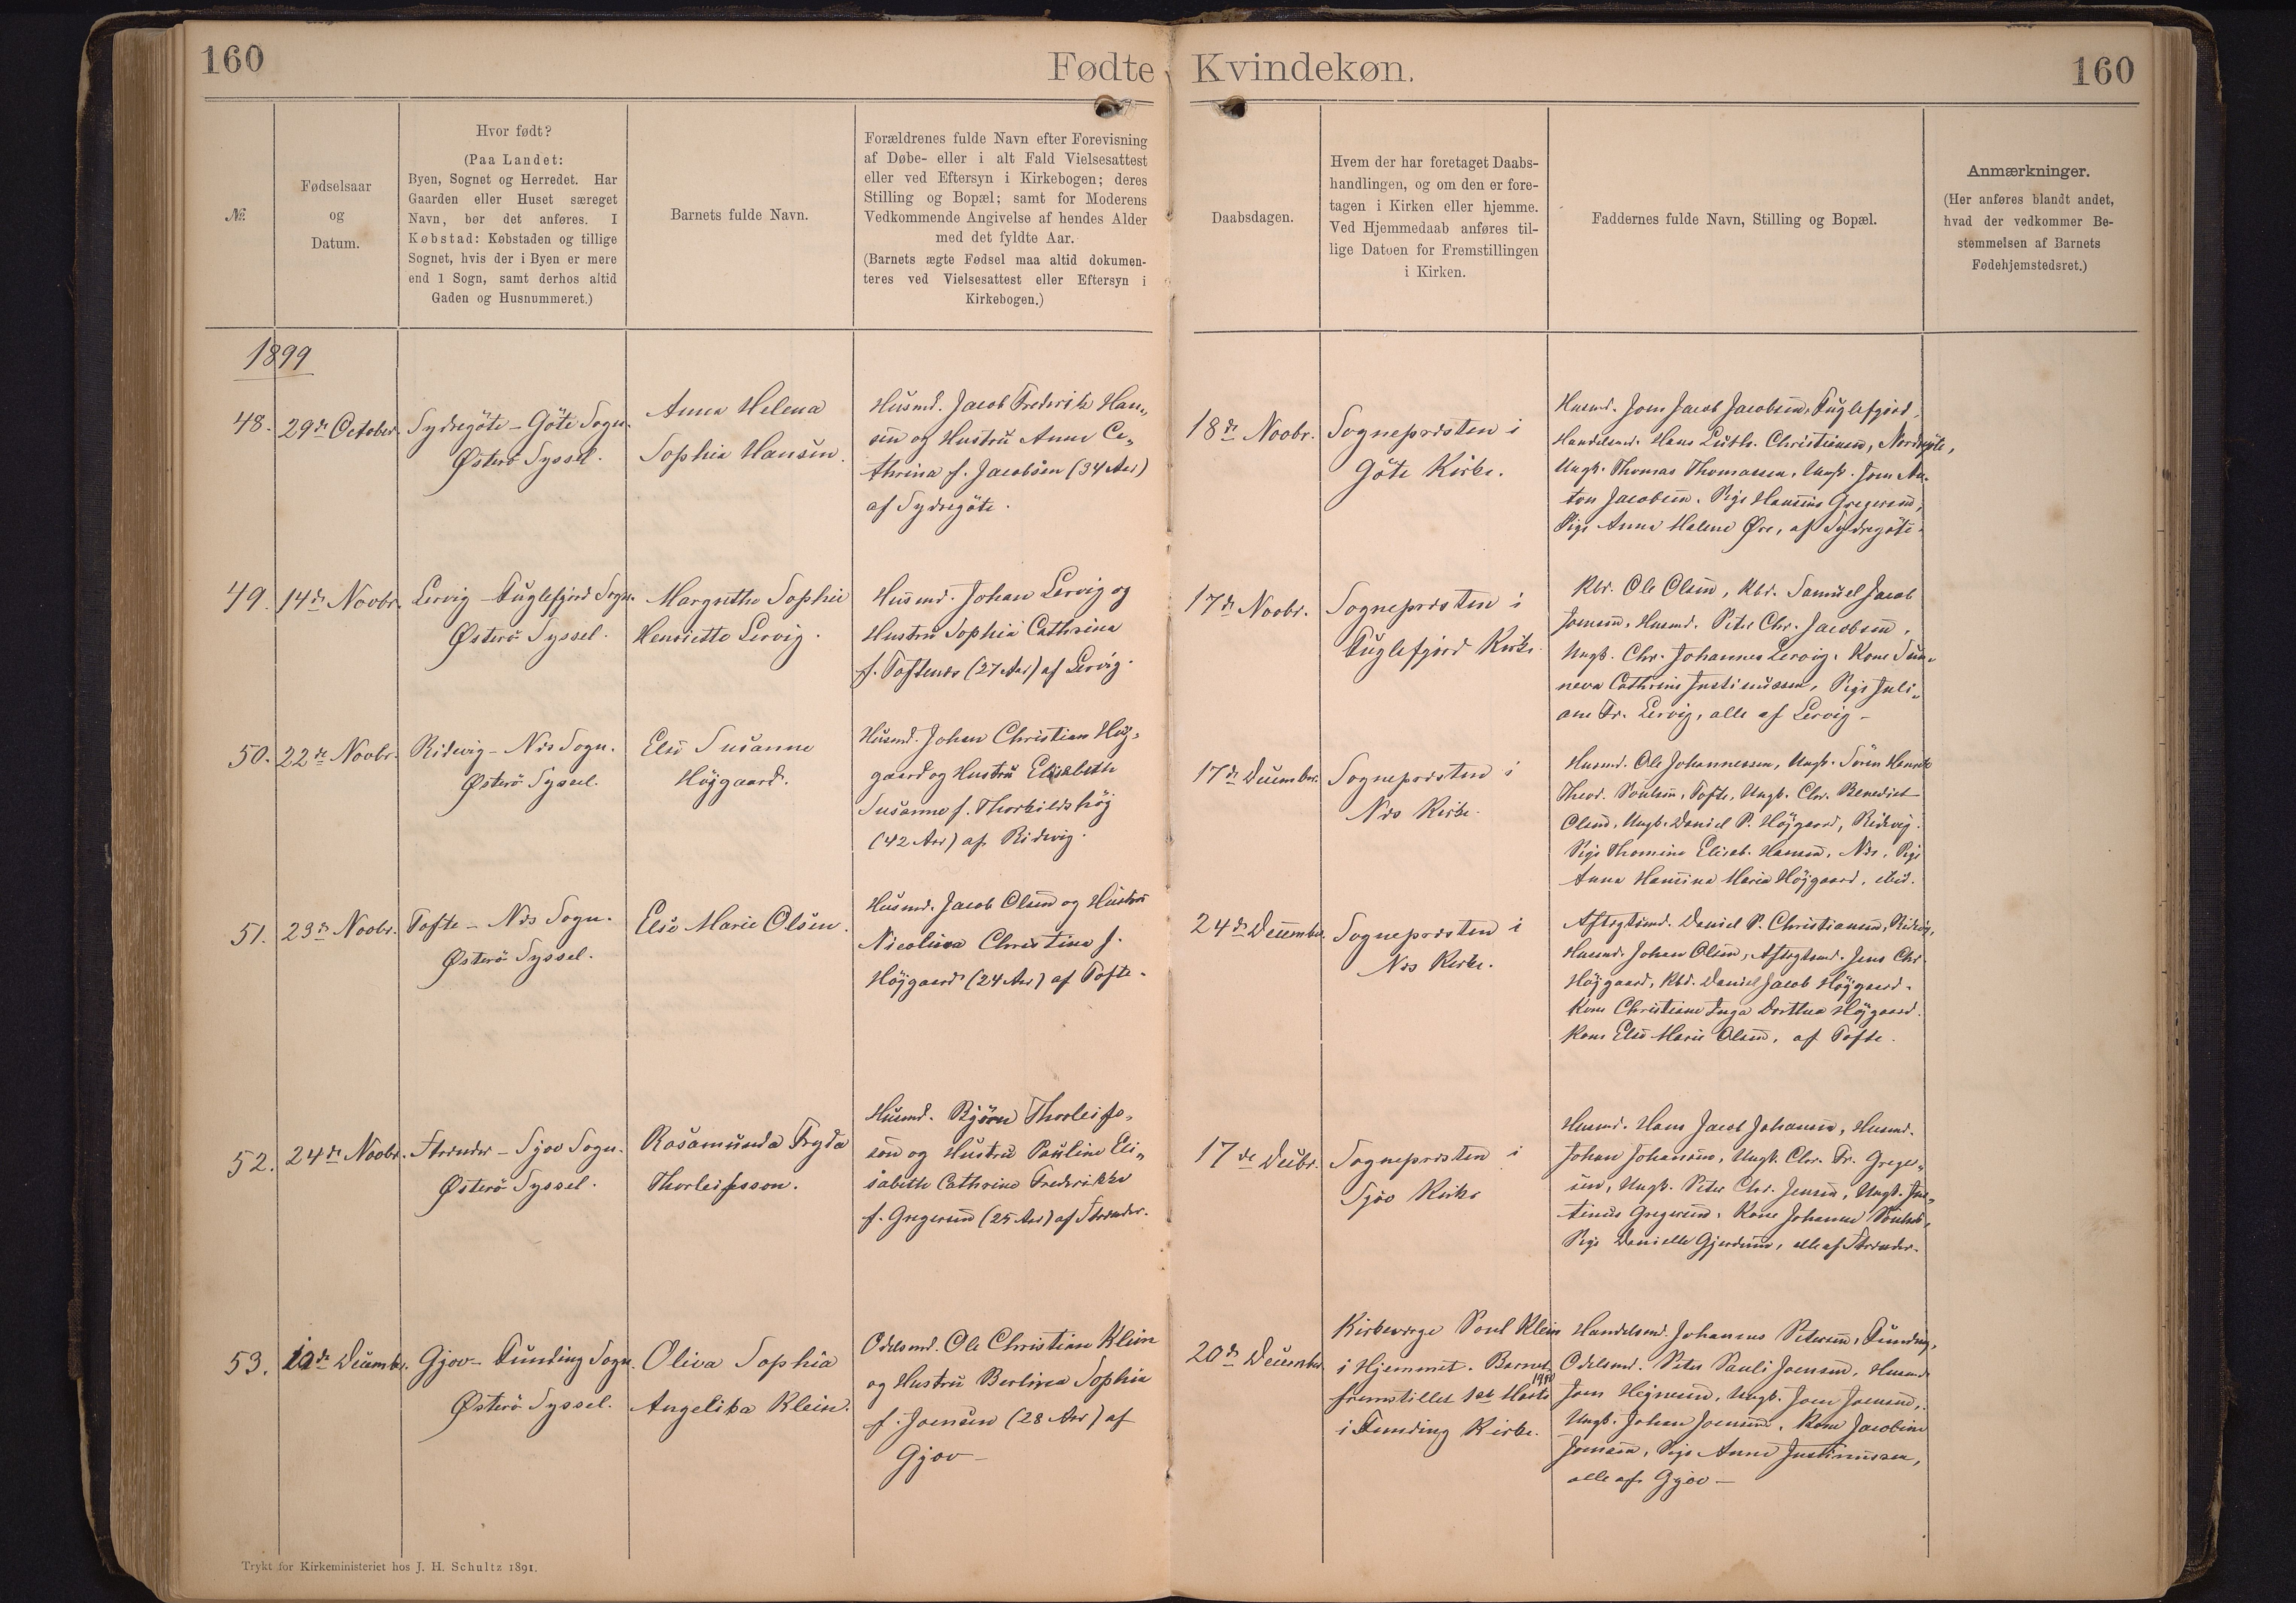 160
Fødte
Kvindekøn.
160
№
Fødselsaar
og
Datum.
Hvor født?
(Paa Landet:
Byen, Sognet og Herredet. Har
Gaarden eller Huset særeget
Navn, bør det anføres. I
Købstad: Købstaden og tillige
Sognet, hvis der i Byen er mere
end 1 Sogn, samt derhos altid
Gaden og Husnummeret.)
Barnets fulde Navn.
Forældrenes fulde Navn efter Forevisning
af Døbe- eller i alt Fald Vielsesattest
eller ved Eftersyn i Kirkebogen; deres
Stilling og Bopæl; samt for Moderens
Vedkommende Angivelse af hendes Alder
med det fyldte Aar.
(Barnets ægte Fødsel maa altid dokumen-
teres ved Vielsesattest eller Eftersyn i
Kirkebogen.)
Daabsdagen.
Hvem der har foretaget Daabs-
handlingen, og om den er fore-
tagen i Kirken eller hjemme.
Ved Hjemmedaab anføres til-
lige Datoen for Fremstillingen
i Kirken.
Faddernes fulde Navn, Stilling og Bopæl.
Anmærkninger.
(Her anføres blandt andet,
hvad der vedkommer Be-
stemmelsen af Barnets
Fødehjemstedsret.)
1899
48.
29de October.
Sydregöte - Göte Sogn.
Østerö Syssel.
Anna Helena
Sophia Hansen.
Husmd. Jacob Frederik Han-
sen og Hustru Anne Ca-
thrina f. Jacobsen (34 Aar)
af Sydregöte.
18de Novbr.
Sognepræsten i
Göte Kirke.
Husmd. Joen Jacob Jacobsen, Fuglefjord,
Handelsmd. Hans Luth. Christiansen, Nordregöte,
Ungk. Thomas Thomassen, Ungk. Joen An-
ton Jacobsen. Pige Hansine Gregersen,
Pige Anna Helene Øre, af Sydregöte.
49.
14de Novbr.
Lervig - Fuglefjord Sogn.
Østerö Syssel.
Margrethe Sophie
Henriette Lervig.
Husmd. Johan Lervig og
Hustru Sophie Cathrina
f. Toftenæs (27 Aar) af Lervig.
17de Novbr.
Sognepræsten i
Fuglefjord Kirke.
Kbd. Ole Olsen, Kbd. Samuel Jacob
Joensen, Husmd. Peter Chr. Jacobsen,
Ungk. Chr. Johannes Lervig. Kone Sun-
neva Cathrine Justinussen, Pige Juli-
ane Fr. Lervig, alle af Lervig -
50.
22de Novbr.
Ridevig - Næs Sogn.
Østerö Syssel.
Else Susanne
Höjgaard.
Husmd. Johan Christian Höj-
gaard og Hustru Elisabeth
Susanne f. Thorkildshöj
(42 Aar) af Ridevig.
17de December.
Sognepræsten i
Næs Kirke.
Husmd. Ole Johannessen, Ungk. Sören Henrik
Theod. Poulsen, Tofte, Ungk. Chr. Benedict
Olsen, Ungk. Daniel P. Höjgaard, Ridevig.
Pige Thomine Elisab. Hansen, Næs, Pige
Anna Hansina Maria Höjgaard, ibid.
51.
23de Novbr.
Tofte - Næs Sogn.
Østerö Syssel.
Else Marie Olsen.
Husmd. Jacob Olsen og Hustru
Nicolina Christine f.
Höjgaard (24 Aar) af Tofte.
24de December.
Sognepræsten i
Næs Kirke.
Aftægtsmd. Daniel P. Christiansen, Ridevig,
Husmd. Johan Olsen, Aftægtsmd. Jens Chr.
Höjgaard, Kbd. Daniel Jacob Höjgaard.
Kone Christiane Inga Dorthea Höjgaard.
Kone Else Marie Olsen, af Tofte.
52.
24de Novbr.
Strender - Sjov Sogn.
Østerö Syssel.
Rosamunda Fryda
Thorleifsson.
Husmd. Björn Thorleifs-
son og Hustru Pauline Eli-
sabeth Cathrine Frederikke
f. Gregersen (25 Aar) af Strender.
17de Decbr.
Sognepræsten i
Sjov Kirke
Husmd. Hans Jacob Johansen, Husmd.
Johan Johansen, Ungk. Chr. Fr. Greger-
sen, Ungk. Peter Chr. Jensen, Ungk. Jus-
tinus Gregersen. Kone Johanne Poulsen,
Pige Danielle Gjerdum, alle af Strender.
53.
10de December.
Gjov - Funding Sogn.
Østerö Syssel.
Oliva Sophia
Angelika Klein.
Odelsmd. Ole Christian Klein
og Hustru Berlina Sophia
f. Joensen (28 Aar) af
Gjov -
20de December
Kirkeværge Poul Klein
i Hjemmet. Barnet
fremstillet 1ste Marts 1900
i Funding Kirke.
Handelsmd. Johannes Petersen, Funding,
Odelsmd. Peter Pauli Joensen, Husmd.
Joen Hejnesen, Ungk. Joen Joensen,
Ungk. Johan Joensen. Kone Jacobine
Joensen, Pige Anne Justinussen,
alle af Gjov -
Trykt for Kirkeministeriet hos J. H. Schultz 1891.